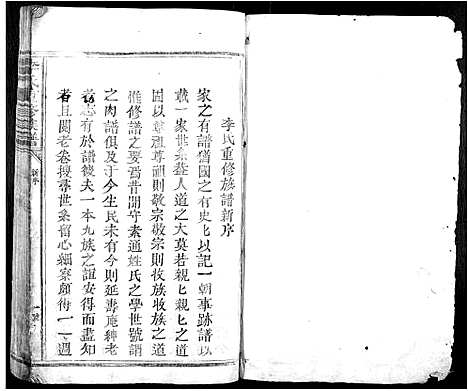 李氏重修族譜新序
家之有譜猶國之有史史以記一朝事跡譜以
載一家世系蓋人道之大莫若親親親之道
固以尊祖尊祖則敬宗敬宗則收族收族之道
惟修譜一書間守素通姓氏之學世號譜
之肉譜俱及于今生民未有今則延壽庵紳老
者志有於譜幾夫一本九族之誼安得而盡知
者且閱老卷搜尋世系留心細察頗得一一週
新序